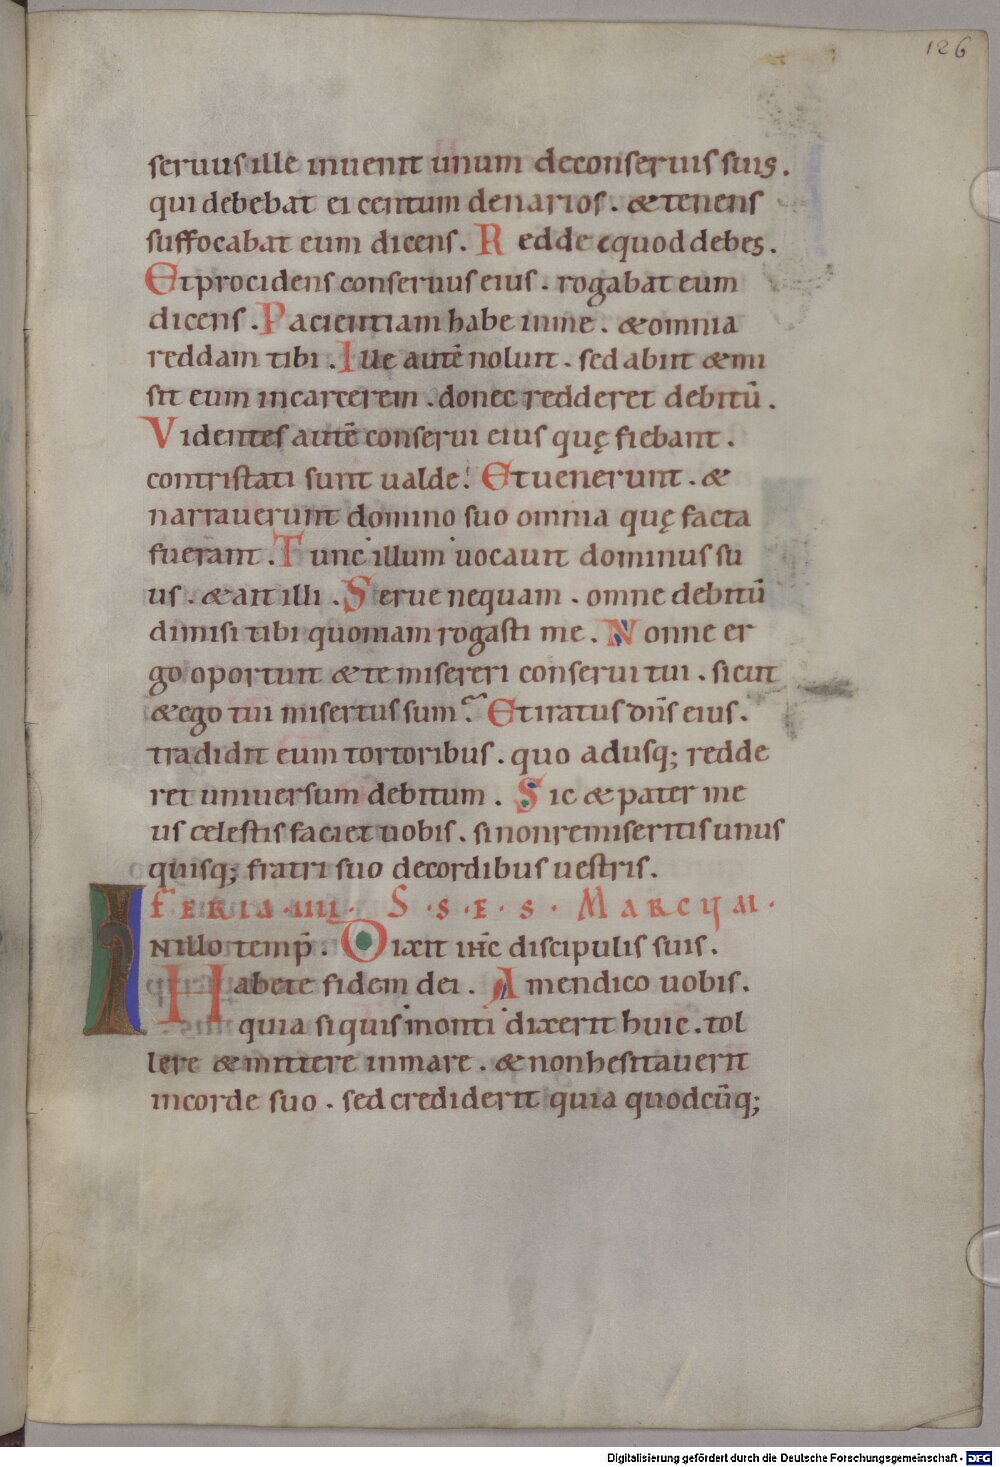 126
seruus ille inuenit unum deconseruis suis.
qui debebat ei centum denarios. &tenens
suffocabat eum dicens. Redde equoddebes.
Etprocidens conseruus eius. rogabat eum
dicens. Pacientiam habe inme. &omnia
reddam tibi. Ille autē noluit. sed abiit &mi
sit eum incarcerem. donec redderet debitū.
Videntes autē conserui eius quę fiebant.
contristati sunt ualde. Etuenerunt. &
narrauerunt domino suo omnia quę facta
fuerant. Tunc illum uocauit dominus su
us. &ait illi. Serue nequam. omne debitū
dimisi tibi quoniam rogasti me. Nonne er
go oportuit &te misereri conserui tui. sicut
&ego tui misertus sum. Etiratus dn̄s eius.
tradidit eum tortoribus. quo adusq; redde
ret uniuersum debitum. Sic &pater me
us celestis faciet uobis. sinonremiseritis unus
quisq; fratri suo decordibus uestris.
FERIA·IIII· S·S·E·S· MARCUM·
INillo temp̄. Dixit ihc̄ discipulis suis.
Habete fidem dei. Amendico uobis.
quia siquis monti dixerit huic. tol
lere &mittere inmare. &nonhesitauerit
incorde suo. sed crediderit quia quodcūq;
Digitalisierung gefördert durch die Deutsche Forschungsgemeinschaft - DFG